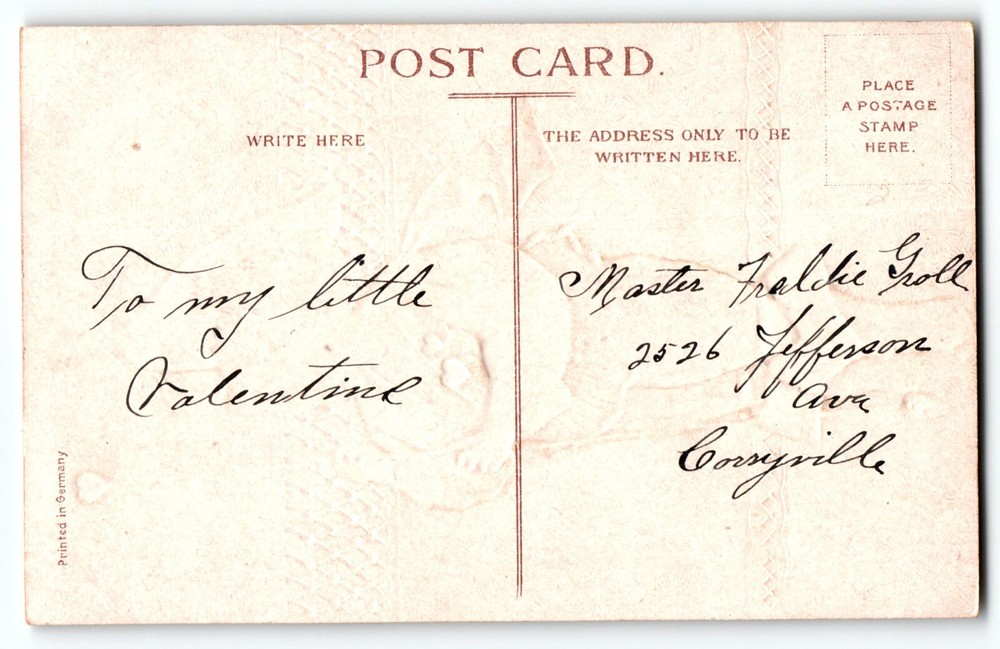 POST CARD.
WRITE HERE
THE ADDRESS ONLY TO BE
WRITTEN HERE.
PLACE
A POSTAGE
STAMP
HERE.
To my little
Valentine
Master Fraldie Groll
2526 Jefferson
Ave
Corryville
Printed in Germany